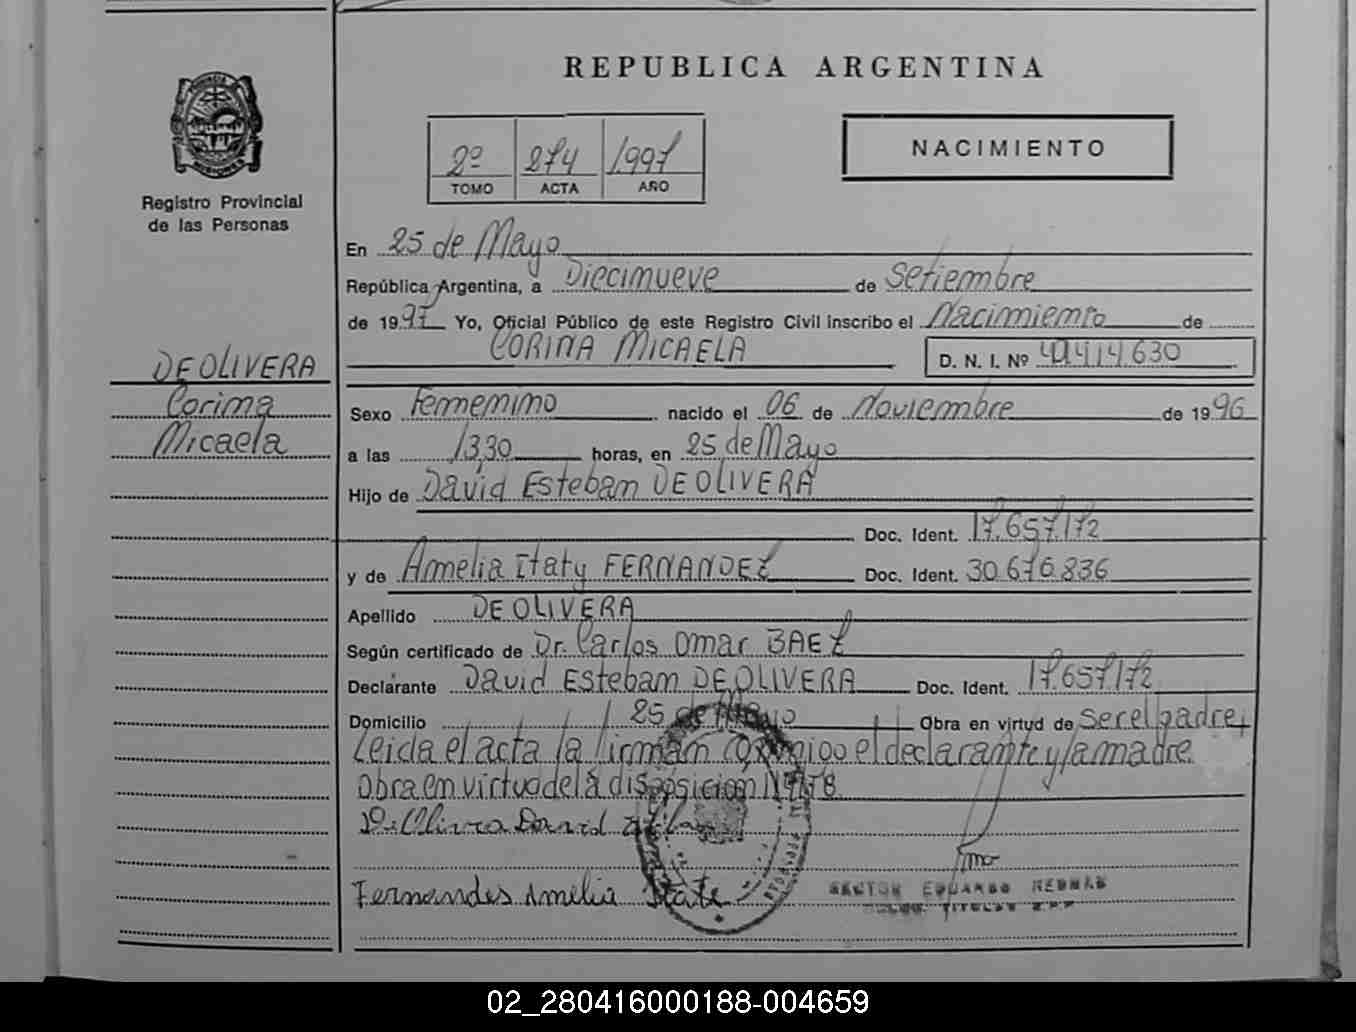 REPUBLICA ARGENTINA
NACIMIENTO
2º 274 1.997
TOMO ACTA AÑO
Registro Provincial
de las Personas
En 25 de Mayo
República Argentina, a Diecinueve de Setiembre
de 1997 Yo, Oficial Público de este Registro Civil inscribo el Nacimiento de
CORINA MICAELA
D. N. I. Nº 40.414.630
DE OLIVERA
Corina
Micaela
Sexo Femenino nacido el 06 de Noviembre de 1996
a las 13,30 horas, en 25 de Mayo
Hijo de David Esteban DE OLIVERA
Doc. Ident. 17.657.172
y de Amelia Itaty FERNANDEZ Doc. Ident. 30.676.836
Apellido DE OLIVERA
Según certificado de Dr. Carlos Omar BAEZ
Declarante David Esteban DE OLIVERA Doc. Ident. 17.657.172
Domicilio 25 de Mayo Obra en virtud de ser el padre,
Leida el acta la firman conmigo el declarante y la madre.
Obra en virtud de la disposicion
De Olivra David
Fernandes Amelia Itate
EDUARDO
02_280416000188-004659